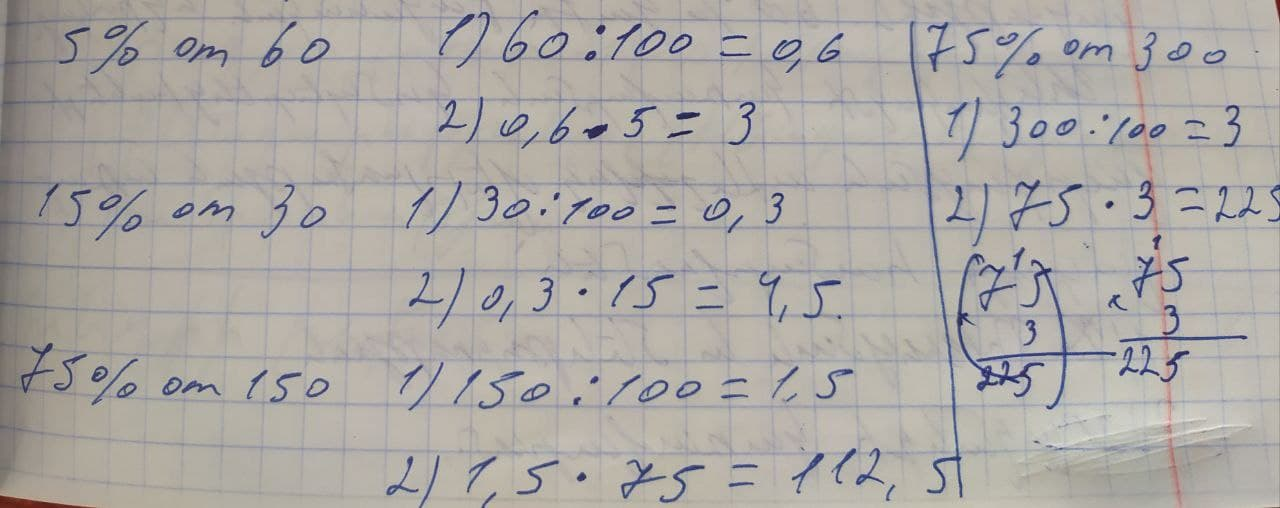 5% от 60 1) 60 : 100 = 0,6
2) 0,6 · 5 = 3
15% от 30 1) 30 : 100 = 0,3
2) 0,3 · 15 = 4,5.
75% от 150 1) 150 : 100 = 1,5
2) 1,5 · 75 = 112,5
75% от 300
1) 300 : 100 = 3
2) 75 · 3 = 225
1
75
× 3
225
1
75
× 3
225